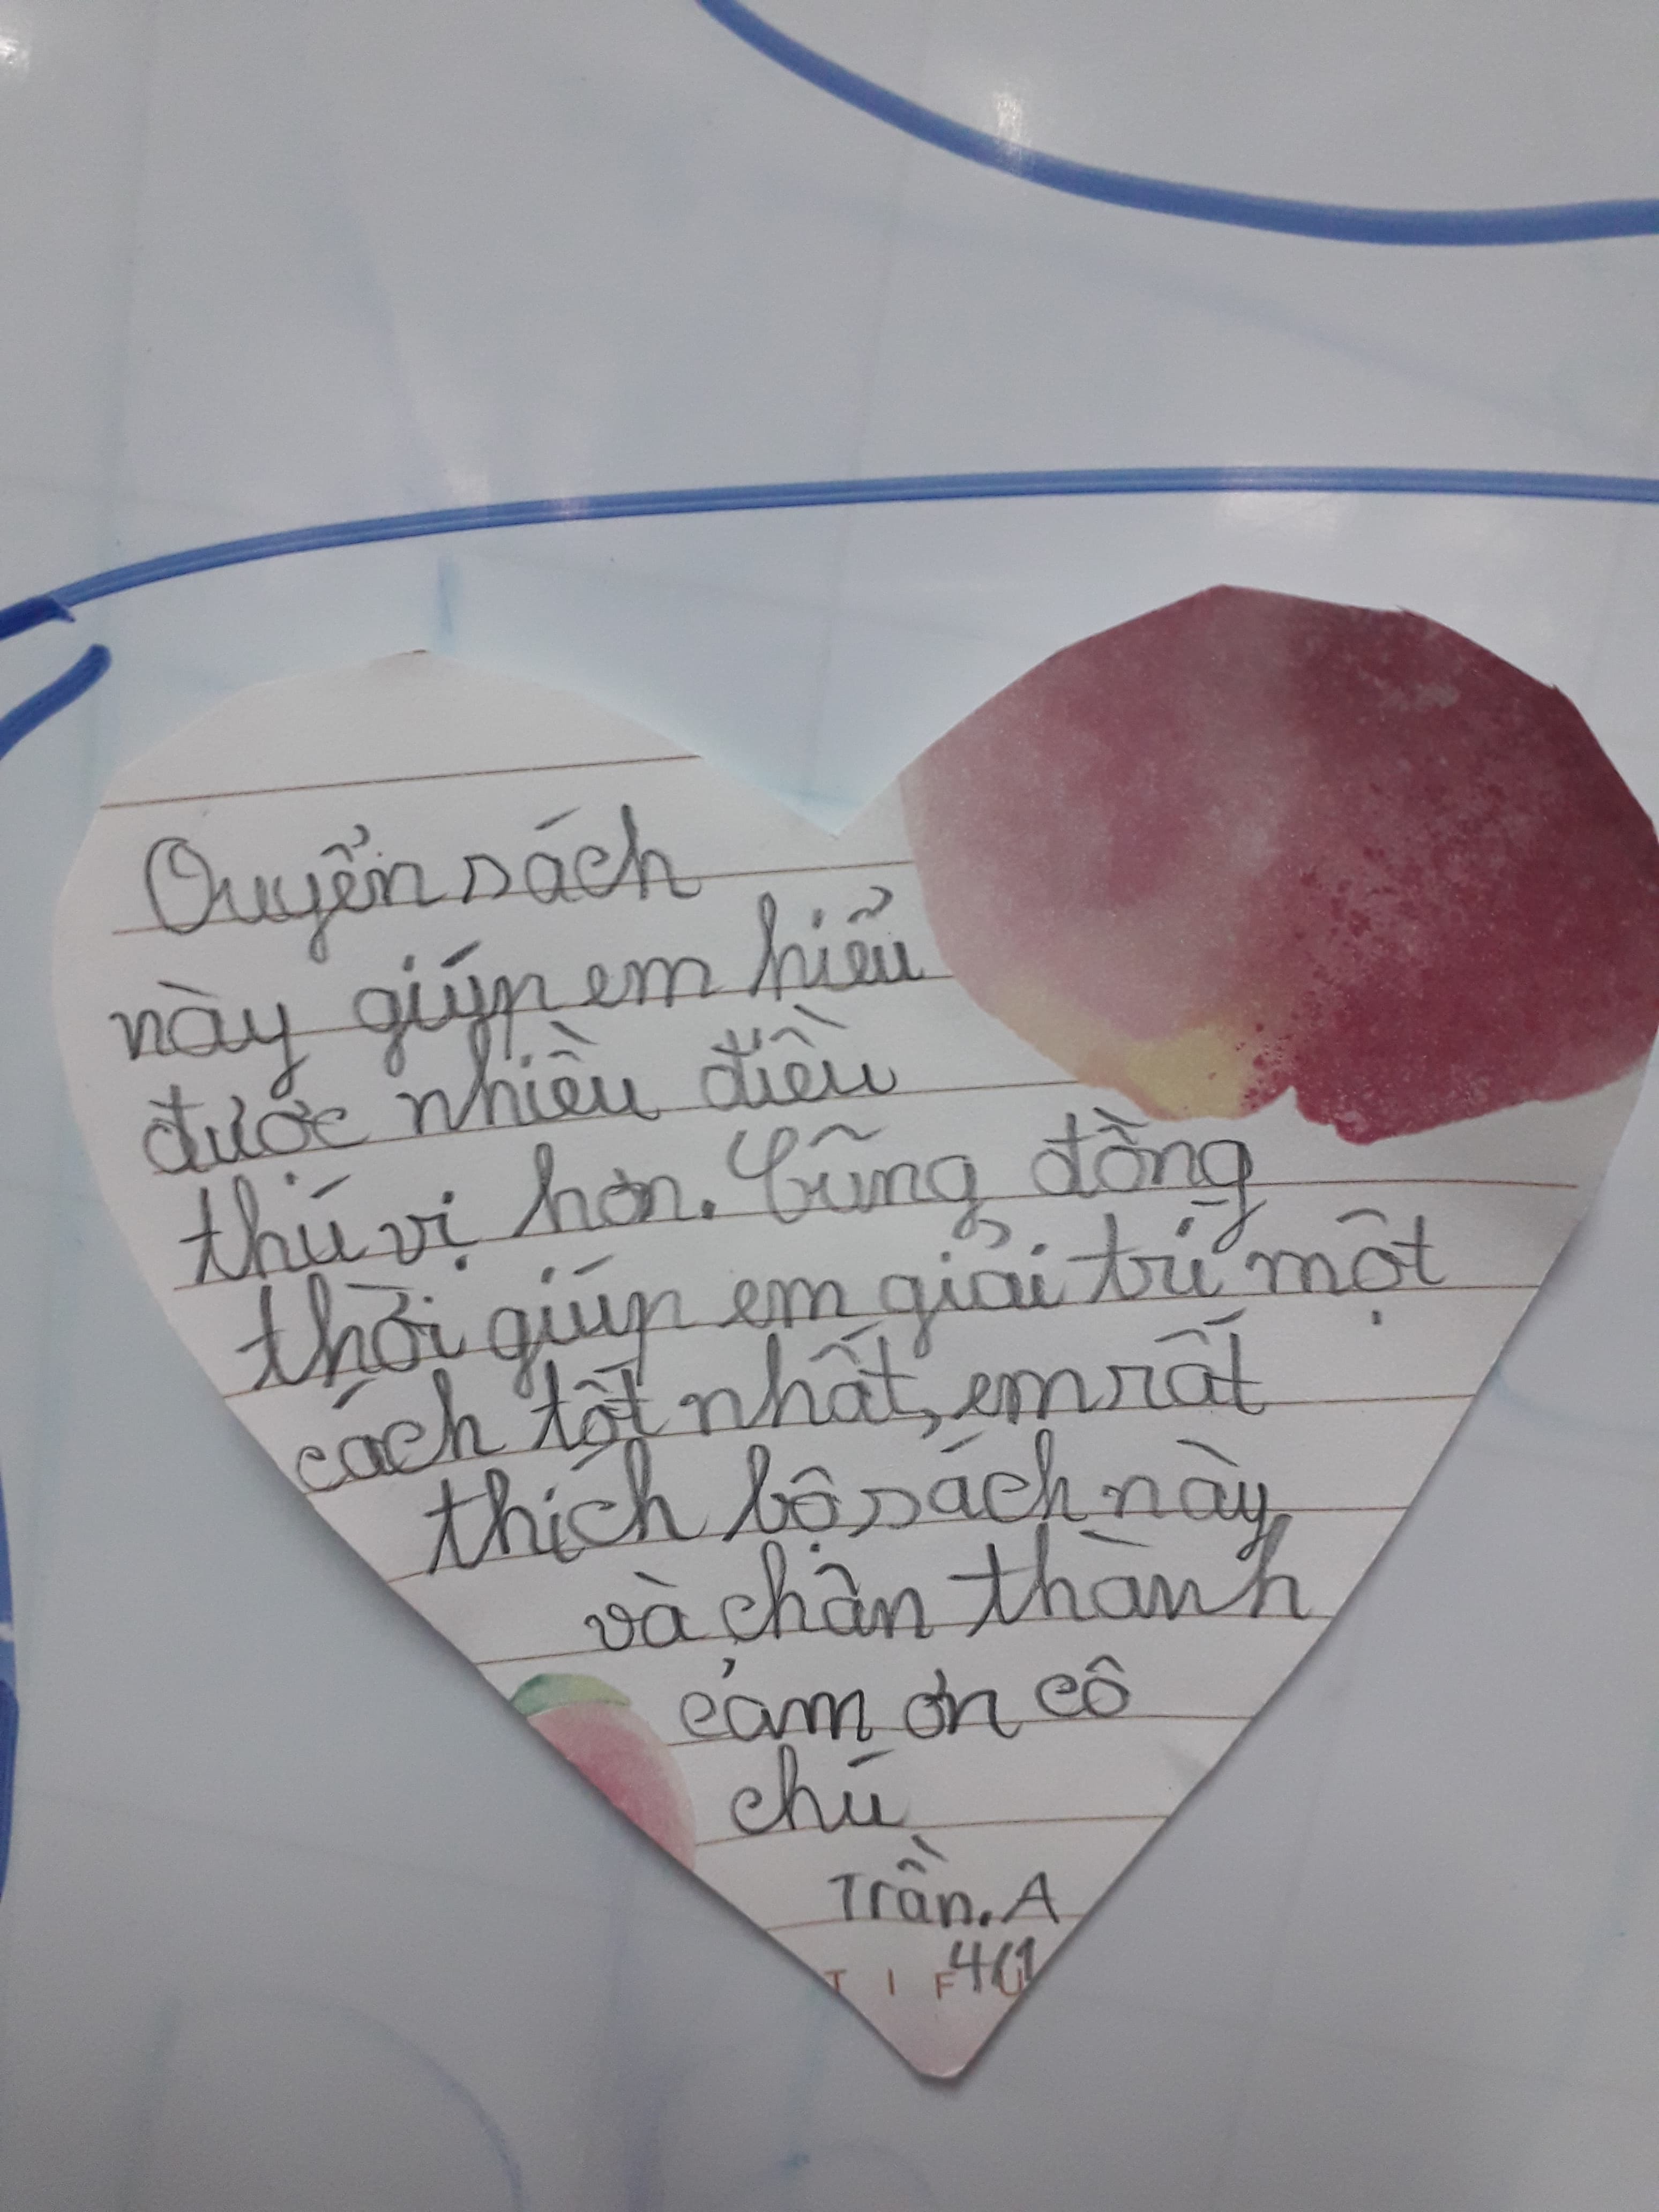 Quyển sách
này giúp em hiểu
được nhiều điều
thú vị hơn. Cũng đồng
thời giúp em giải trí một
cách tốt nhất, em rất
thích bộ sách này
và chân thành
cảm ơn cô
chú
Trần. A
4(1
T I F U